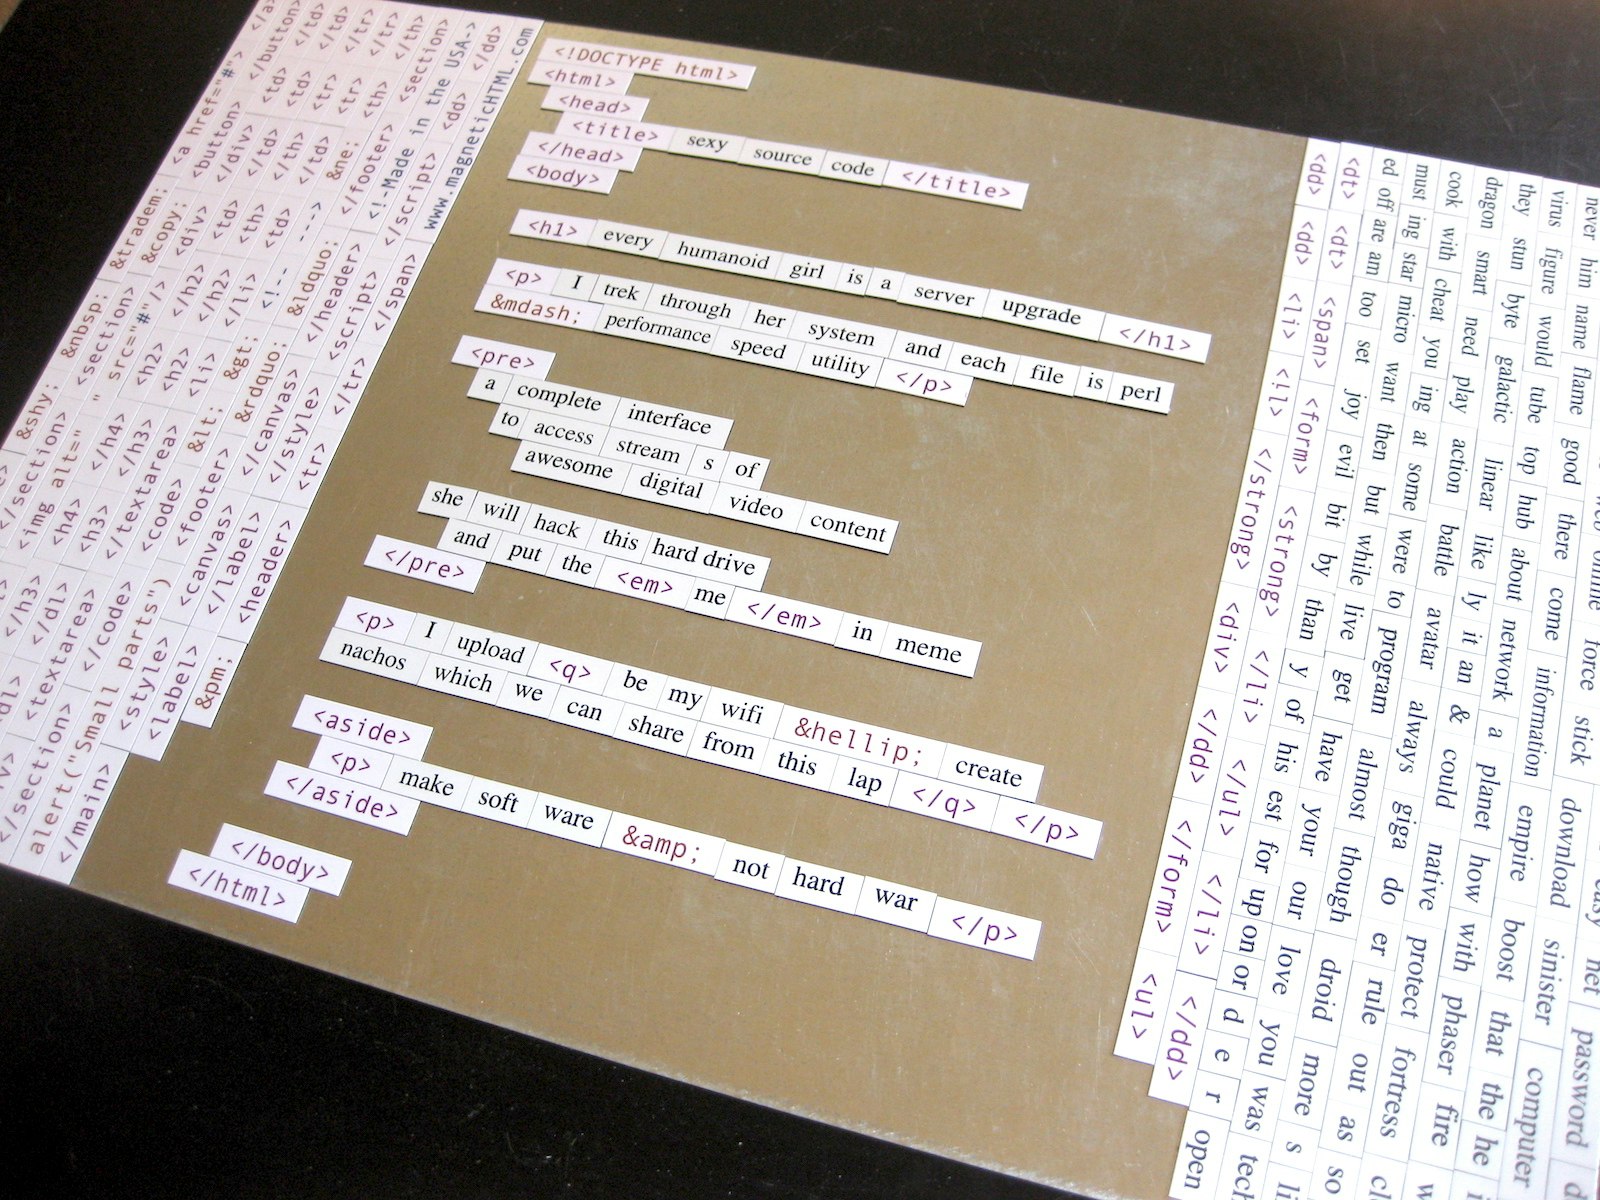 &pm; <header> <tr> </tr> </span> www.magneticHTML.com
<label> </label> </style> <script> </script> <dd> </dd>
</main> <style> <canvas> </canvas> </header> <!-Made in the USA->
alert("Small parts") <footer> &rdquo; &ldquo; </footer> <section>
</section> </code> <code> &lt; &gt; <!-- --> &ne; <th> </th>
<textarea> </textarea>
</dl> <h3> </h3> <h2> </h2>
</h3> <h4> </h4> <h2> </h2>
<img alt=" " src="#"/> <div> </div>
</section> &shy; <section> &copy; <button> </button>
&nbsp; &tradem; <a href="#">
<!DOCTYPE html>
<html>
<head>
<title> sexy source code </title>
</head>
<body>
<h1> every humanoid girl is a server upgrade </h1>
<p> I trek through her system and each file is perl
&mdash; performance speed utility </p>
<pre>
a complete interface
to access stream s of
awesome digital video content
she will hack this hard drive
and put the <em> me </em> in meme
</pre>
<p> I upload <q> be my wifi &hellip; create
nachos which we can share from this lap </q> </p>
<aside>
<p> make soft ware &amp; not hard war </p>
</aside>
</body>
</html>
<dd> <dd> <li> <li> </strong> <div> </dd> </form> <ul>
<dt> <dt> <span> <form> <strong> </li> </ul> </li> </dd>
ed off are am too set joy evil bit by than y of his est for up on or d e r open
must ing star micro want then but while live get have your our love you was tech
cook with cheat you ing at some were to program almost though droid more s li
dragon smart need play action battle avatar always giga do er rule out as so
they stun byte galactic linear like ly it an & could native protect fortress
virus figure would tube top hub about network a planet how with phaser fire
never him name flame good there come information empire boost that the he
online force stick download sinister computer
easy net password